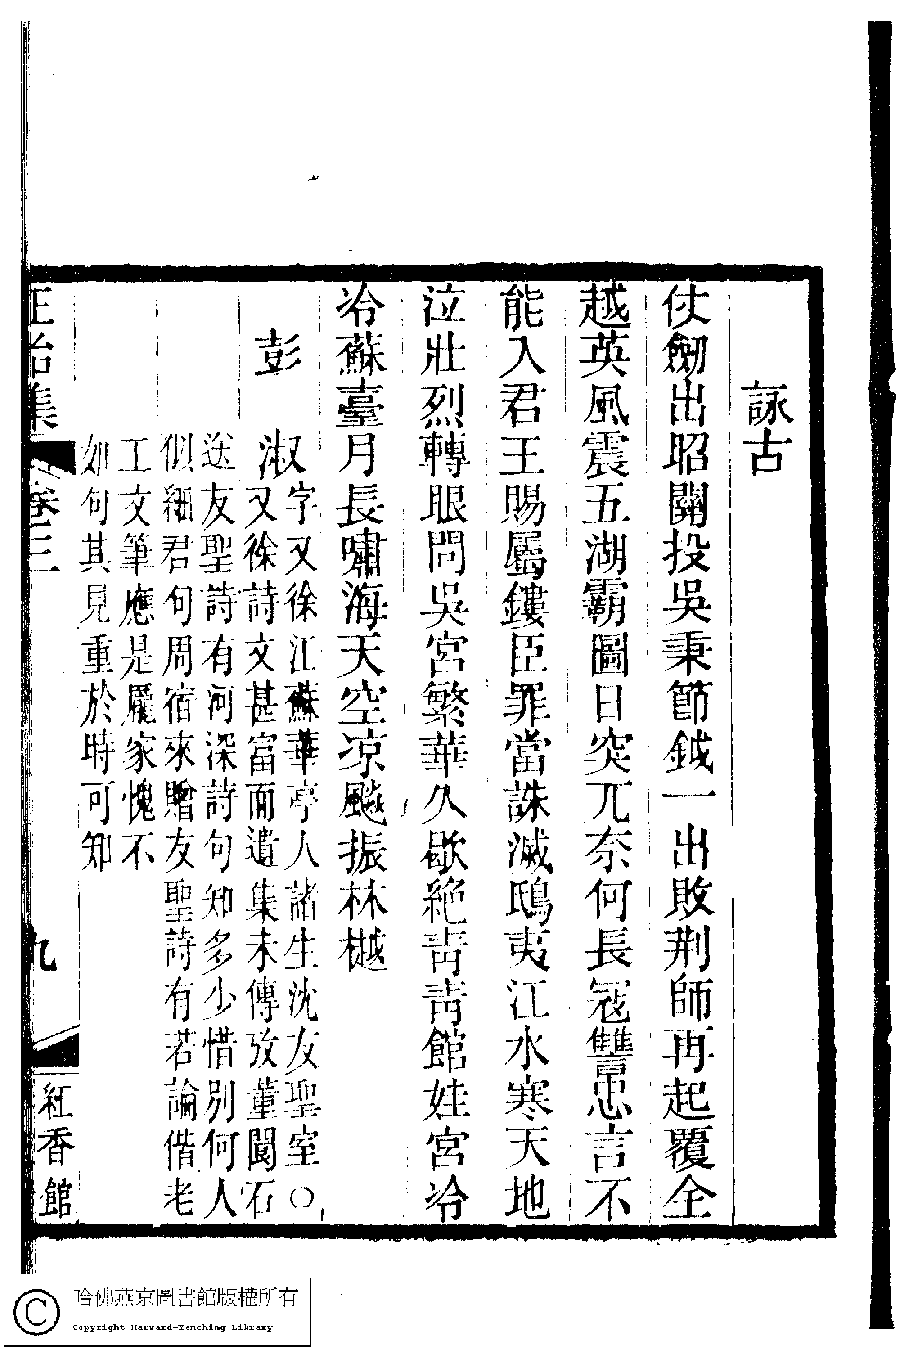 詠古
仗劒出昭關投吳秉節鉞一出敗荆師再起覆全
越英風震五湖霸圖日突兀奈何長冦讐忠言不
能入君王賜屬鏤臣罪當誅滅鴟夷江水寒天地
泣壯烈轉眼問吳宮繁華久歇絶靑靑館娃宮冷
冷蘇臺月長嘯海天空凉飈振林樾
彭淑字又徐江蘇華亭人諸生沈友聖室○
又徐詩文甚富而遺集未傳攷董閬石
送友聖詩有河深詩句知多少惜別何人
似細君句周宿來贈友聖詩有若論偕老
工文筆應是龎家愧不
如句其見重於時可知
正始集
卷三
九
紅香館
哈佛燕京圖書館版權所有
Copyright Harvard-Yenching Library